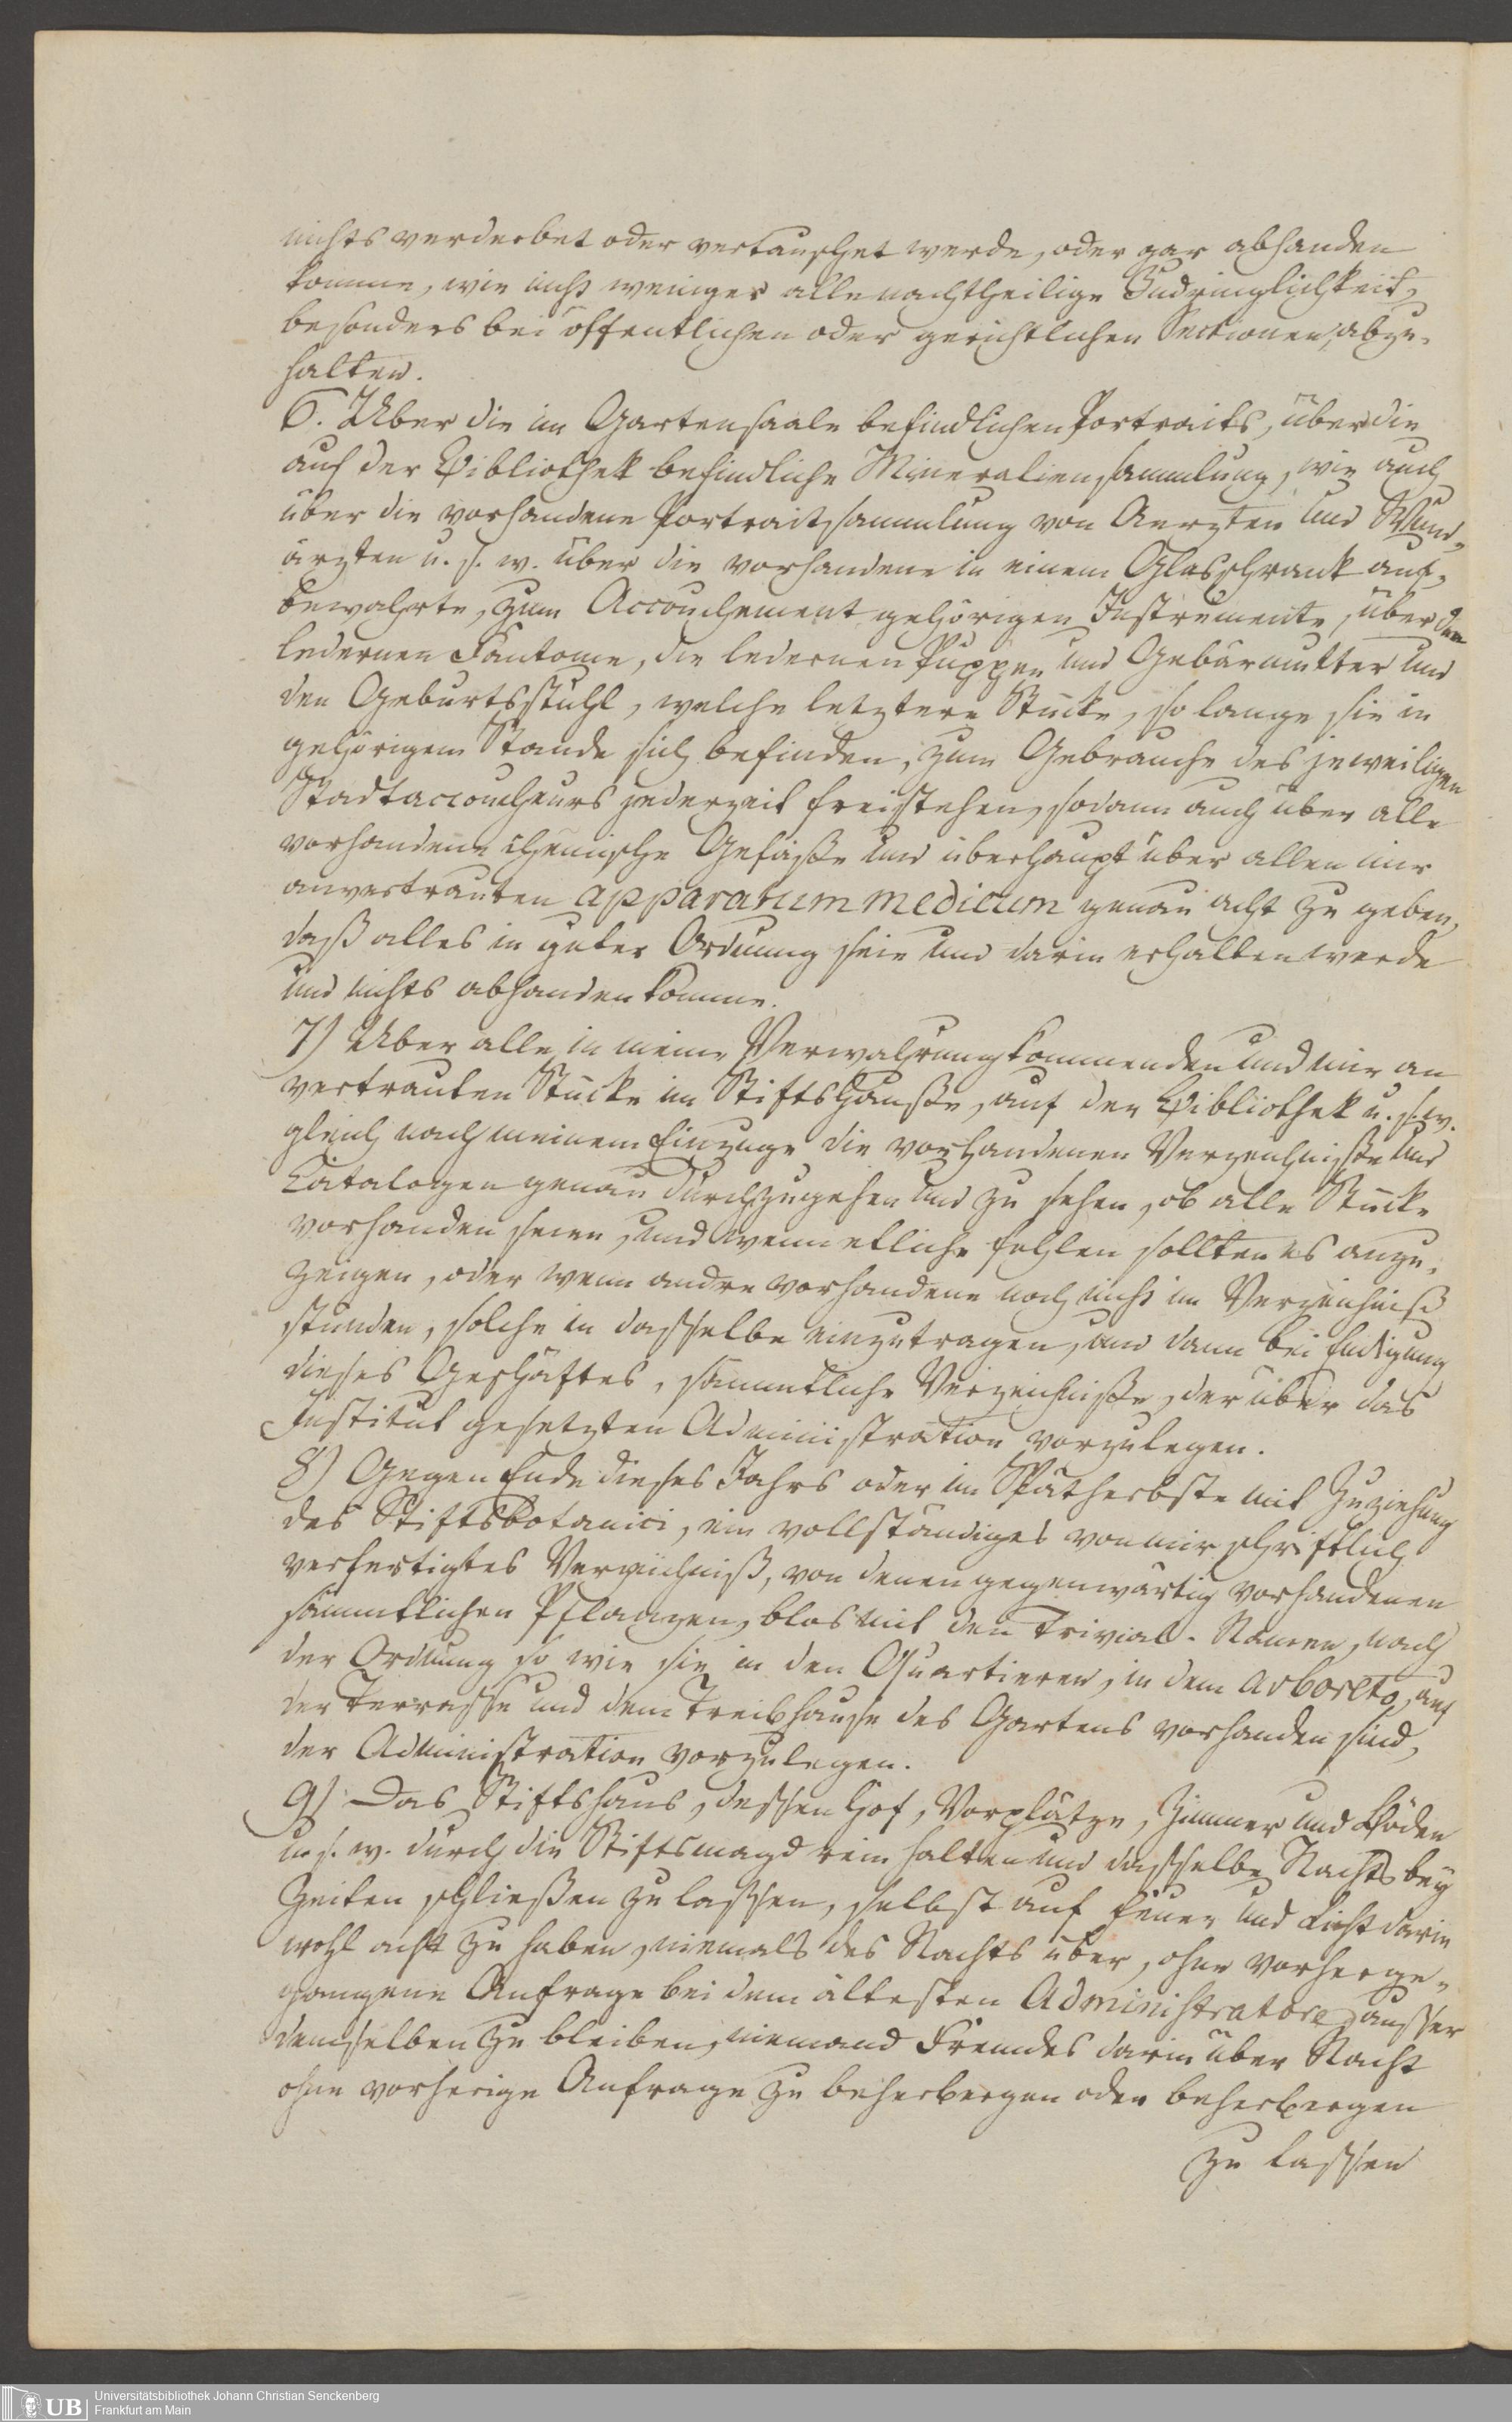 nichts verderbet oder vertauschet werde, oder gar abhanden
komme, wie nicht weniger alle nachtheilige Zudringlichkeit,
besonders bei öffentlichen oder gerichtlichen Sectionen, abzu-
halten.
6. Über die im Gartensaale befindlichen Portraits, über die
auf der Bibliothek befindliche Mineraliensammlung, wie auch
über die vorhandene Portraitsammlung von Aerzten und Wund-
ärzten u. s. w. über die vorhandene in einem Glasschrank auf-
bewahrte, zum Accouchement gehörigen Instrumente, über den
ledernen Fantome, die ledernen Puppen und Gebärmutter und
den Geburtsstuhl, welche letztere Stücke, so lange sie in
gehörigem Stande sich befinden, zum Gebrauche des jeweiligen
Stadtaccoucheurs jederzeit freistehen, sodann auch über alle
vorhandene chemische Gefäße und überhaupt über allen mir
anvertrauten apparatum medicum genau acht zu geben,
daß alles in guter Ordnung seie und darin erhalten werde
und nichts abhanden komme.
7) Über alle in meine Verwahrung kommenden und mir an
vertrauten Stücke im Stiftshauße, auf der Bibliothek u. s. w.
gleich nach meinem Einzuge die vorhandenen Verzeichniße und
Catalogen genau durchzugehen und zu sehen, ob alle Stücke
vorhanden seien, und wenn etliche fehlen sollten es anzu-
zeigen, oder wenn andre vorhandene noch nicht im Verzeichniß
stünden, solche in dasselbe einzutragen, und dann bei Endigung
dieses Geschäftes, sämmtliche Verzeichniße, der über das
Institut gesetzten Administration vorzulegen.
8) Gegen Ende dieses Jahrs oder im Spätherbste mit Zuziehung
des Stiftsbotanici, ein vollständiges von mir schriftlich
verfertigtes Verzeichniß, von denen gegenwärtig vorhandenen
sämmtlichen Pflanzen, blos mit den Trivial-Namen, nach
der Ordnung so wie sie in den Quartieren, in dem Arboreto, auf
der Terrasse und dem Treibhause des Gartens vorhanden sind,
der Administration vorzulegen.
9) Das Stiftshaus, dessen Hof, Vorplätze, Zimmer und Böden
u. s. w. durch die Stiftsmagd rein halten und dasselbe Nachts bey
Zeiten schließen zu lassen, selbst auf Feuer und Licht darin
wohl acht zu haben, niemals des Nachts über, ohne vorherge-
gangene Anfrage bei dem ältesten Administratore, ausser
demselben zu bleiben, niemand Fremdes darin über Nacht
ohne vorherige Anfrage zu beherbergen oder beherbergen
zu lassen
UB
Universitätsbibliothek Johann Christian Senckenberg
Frankfurt am Main